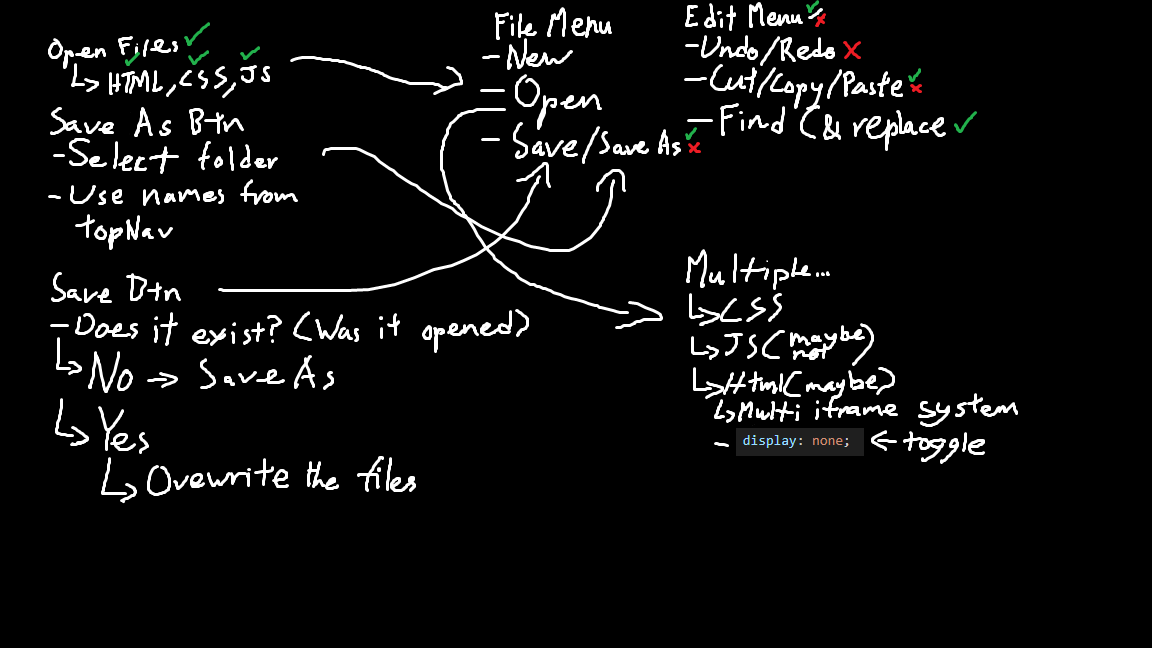 Open Files
HTML, CSS, JS
Save As Btn
- Select folder
- Use names from
topNav
Save Btn
- Does it exist? (Was it opened)
No → Save As
Yes
Ovewrite the files
File Menu
- New
- Open
- Save/Save As
Edit Menu
- Undo/Redo
- Cut/Copy/Paste
- Find (& replace
Multiple...
CSS
JS (maybe not)
Html (maybe)
Multi iframe system
- display: none; ← toggle